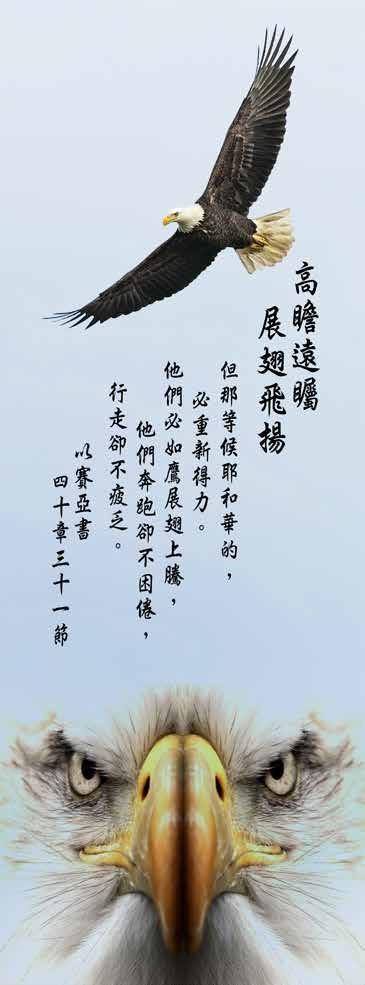 高瞻遠矚
展翅飛揚
但那等候耶和華的，
必重新得力。
他們必如鷹展翅上騰，
他們奔跑卻不困倦，
行走卻不疲乏。
以賽亞書
四十章三十一節